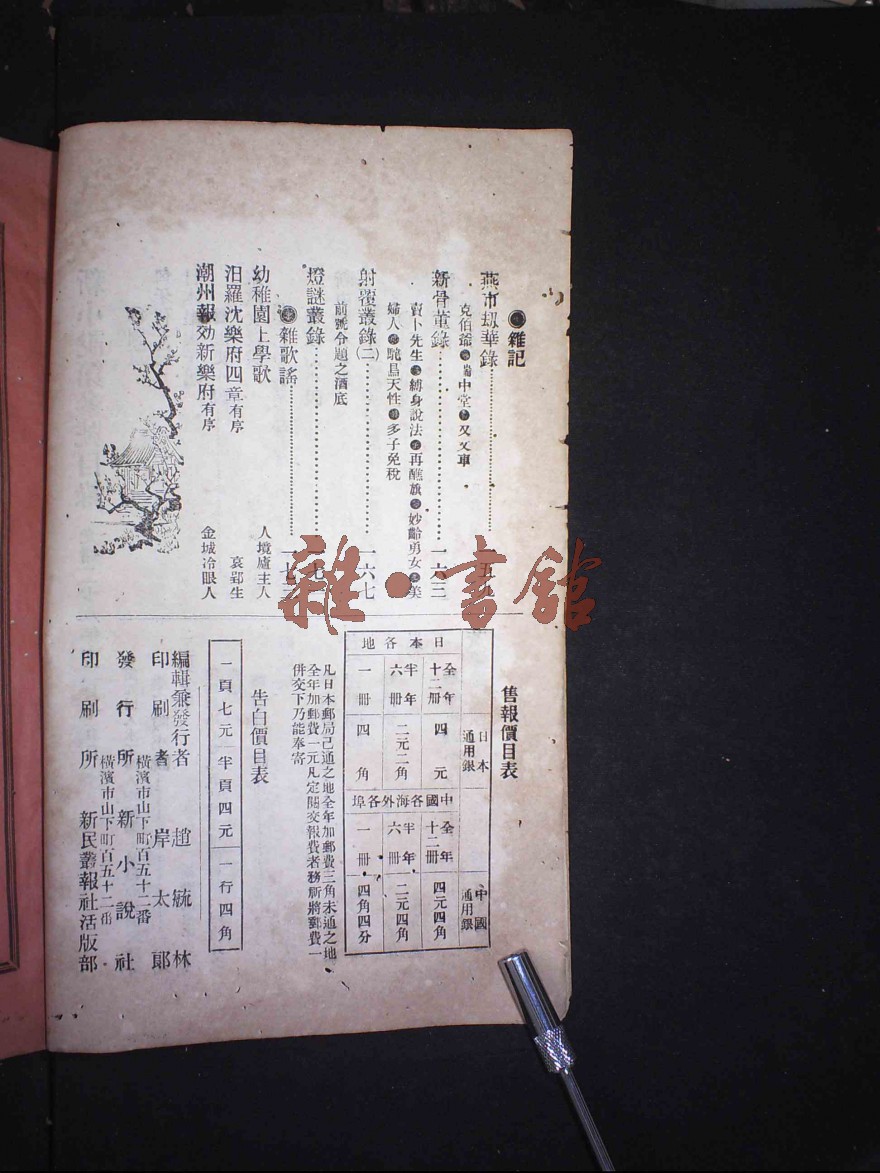 雜記
燕市刼華錄
克伯爺 中堂 叉叉車
新骨董錄 一六三
賣卜先生 縛身說法 再醮旗 妙齡勇女 美
婦人 駝昌天性 多子免稅
射覆叢錄(二) 一六七
前號令題之酒底
燈謎叢錄 一七
雜歌謠 一七三
幼稚園上學歌 人境廬主人
汨羅沈樂府四章有序 哀郢生
潮州報効新樂府有序 金城冷眼人
售報價目表
日本各地
日本通用銀
全年十二冊 四元
半年六冊 二元二角
一冊 四角
中國各海外各埠
中國通用銀
全年十二冊 四元四角
半年六冊 二元四角
一冊 四角四分
凡日本郵局已通之地全年加郵費三角未通之地
全年加郵費一元凡定閱交報費者務祈將郵費一
併交下乃能奉寄
告白價目表
一頁七元 半頁四元 一行四角
編輯兼發行者 趙毓林
印刷者 岸太郎
橫濱市山下町百五十二番
發行所 新小說社
橫濱市山下町百五十二番
印刷所 新民叢報社活版部
雜·書館